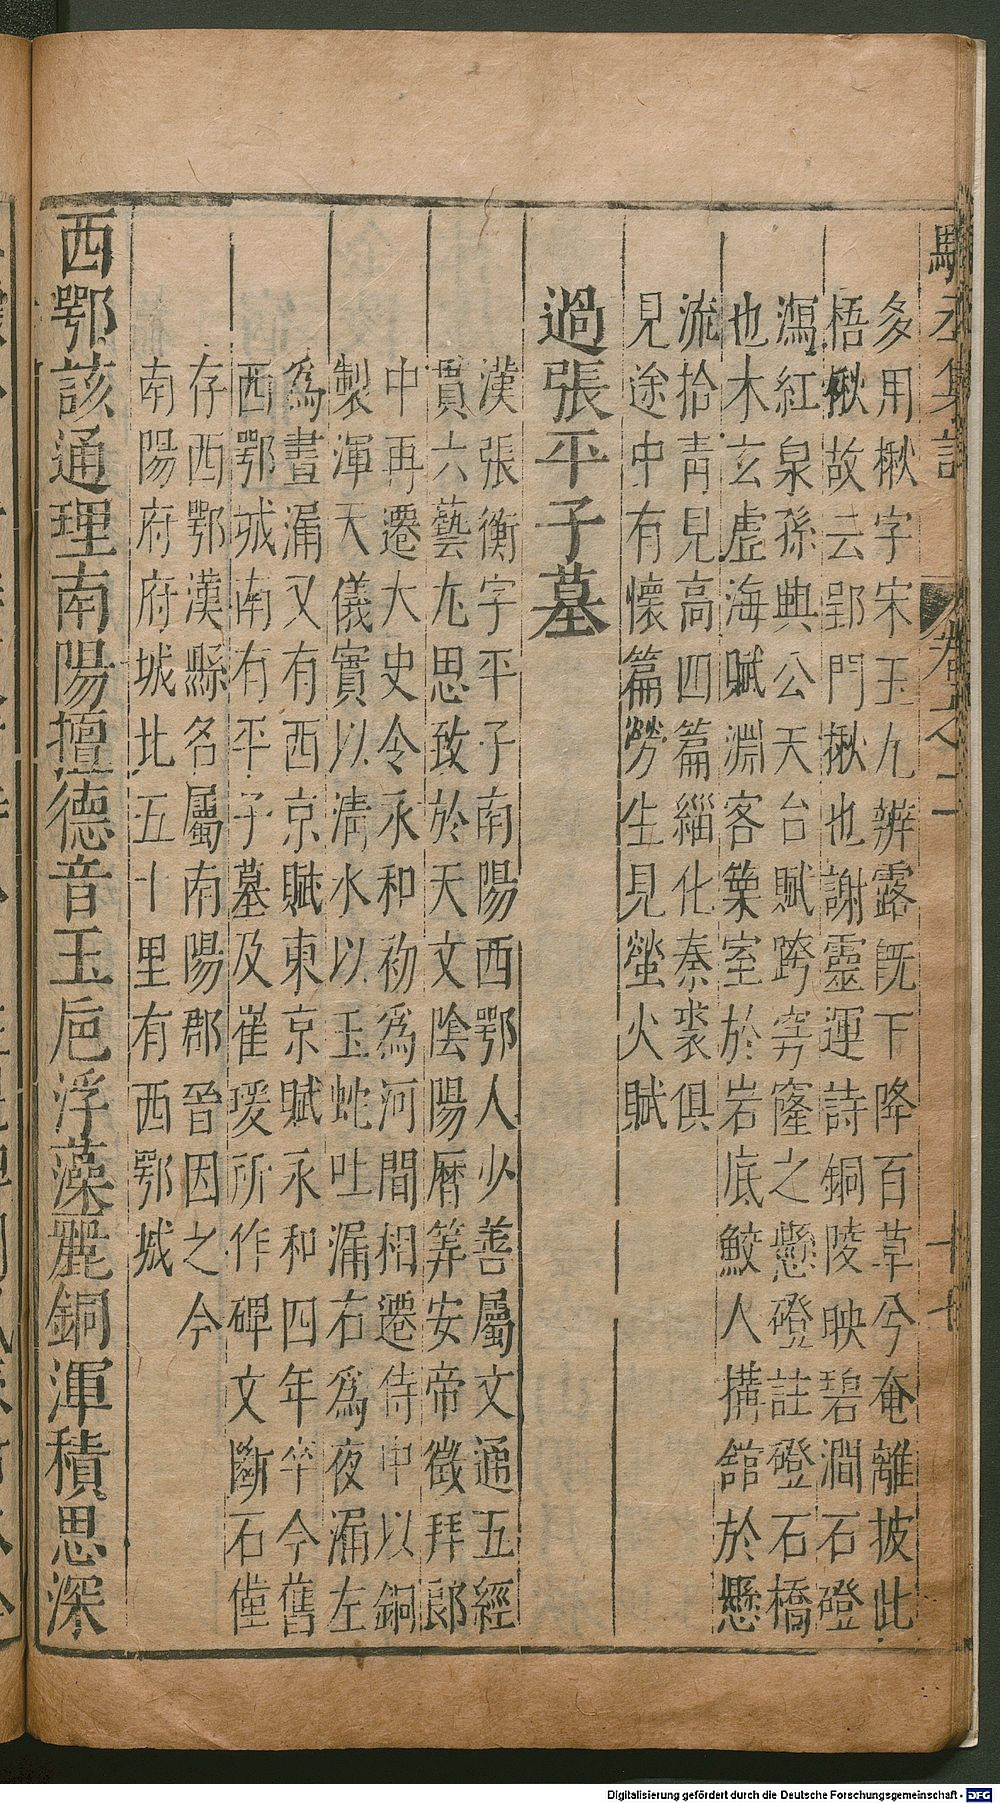 多用楸字宋玉九辨露旣下降百草兮奄離披此
梧楸故云郢門楸也謝靈運詩銅陵映碧澗石磴
瀉紅泉孫興公天台賦跨穹窿之懸磴註磴石橋
也木玄虛海賦淵客築室於岩底鮫人搆舘於懸
流拾青見高四篇緇化秦裘俱
見途中有懷篇勞生見螢火賦
過張平子墓
漢張衡字平子南陽西鄂人少善屬文通五經
貫六藝尤思致於天文陰陽曆筭安帝徵拜郎
中再遷大史令永和初爲河間相遷侍中以銅
製渾天儀實以清水以玉蛇吐漏右爲夜漏左
爲晝漏又有西京賦東京賦永和四年卒今舊
西鄂城南有平子墓及崔瑗所作碑文斷石僅
存西鄂漢縣名屬南陽郡晉因之今
南陽府府城北五十里有西鄂城
西鄂該通理南陽擅德音玉巵浮藻麗銅渾積思深
卷之二
Digitalisierung gefördert durch die Deutsche Forschungsgemeinschaft - DFG